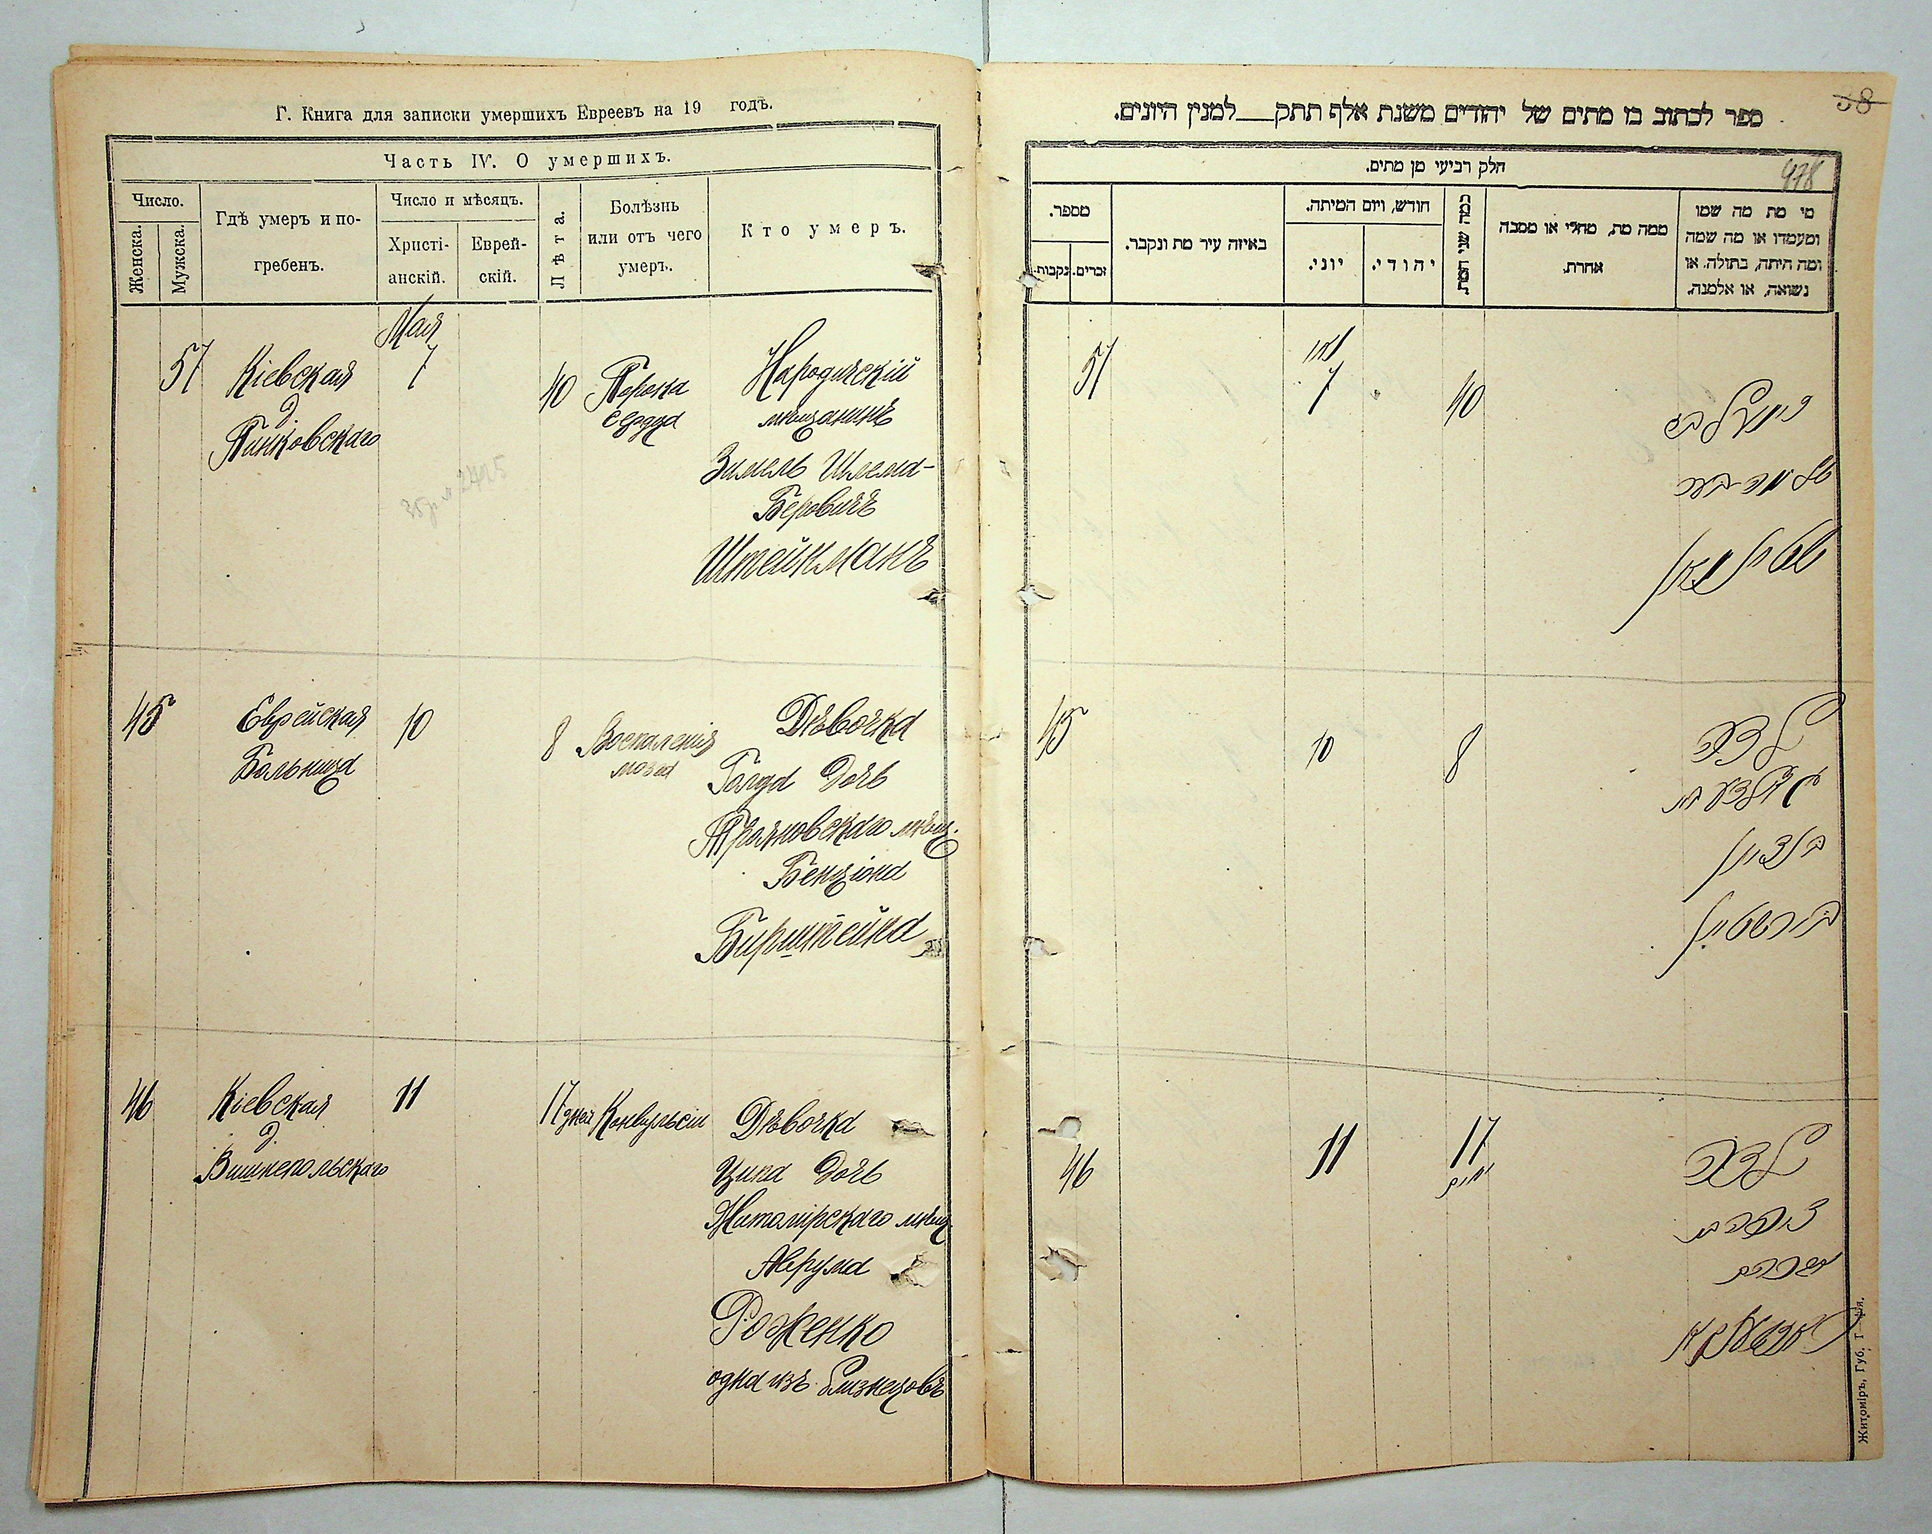 Г. Книга для записки умершихъ Евреевъ на 19 годъ.
Часть IV. О умершихъ.
Число.
Женска.
Мужска.
Гдѣ умеръ и по-
гребенъ.
Число и мѣсяцъ.
Христі-
анскій.
Еврей-
скій.
Лѣта.
Болѣзнь
или отъ чего
умеръ.
Кто умеръ.
57
Кіевская
д.
Пинковскаго
Мая
7
40
Порока
сердца
Народичскій
мѣщанинъ
Зимель Шлема-
Беровичъ
Штейнманъ
45
Еврейская
Больница
10
8
Воспаленія
мозга
Дѣвочка
Голда дочь
мѣщ.
Бенціона
Бирштейна
46
Кіевская
д.
Вишнепольскаго
11
17 дней
Конвульсіи
Дѣвочка
Ципа дочь
Житомірскаго мѣщ.
Аврума
Роженко
одна изъ близнецовъ
38
478
ספר לכתוב בו מתים של יהודים משנת אלף תתק למנין היונים.
חלק רביעי מן מתים.
מספר.
נקבות.
זכרים.
באיזה עיר מת ונקבר.
חודש, ויום המיתה.
יוני.
יהודי.
כמה שני המת.
ממה מת, מחלי או מסבה
אחרת.
מי מת מה שמו
ומעמדו או מה שמה
ומה היתה, בתולה, או
נשואה, או אלמנה.
57
מאי
7
40
שטיינמאן
45
10
8
ילדה
בן ציון
בירשטיין
46
11
17
ימים
ילדה
ציפה בת
אברהם
Житоміръ, Губ. Т-фія.